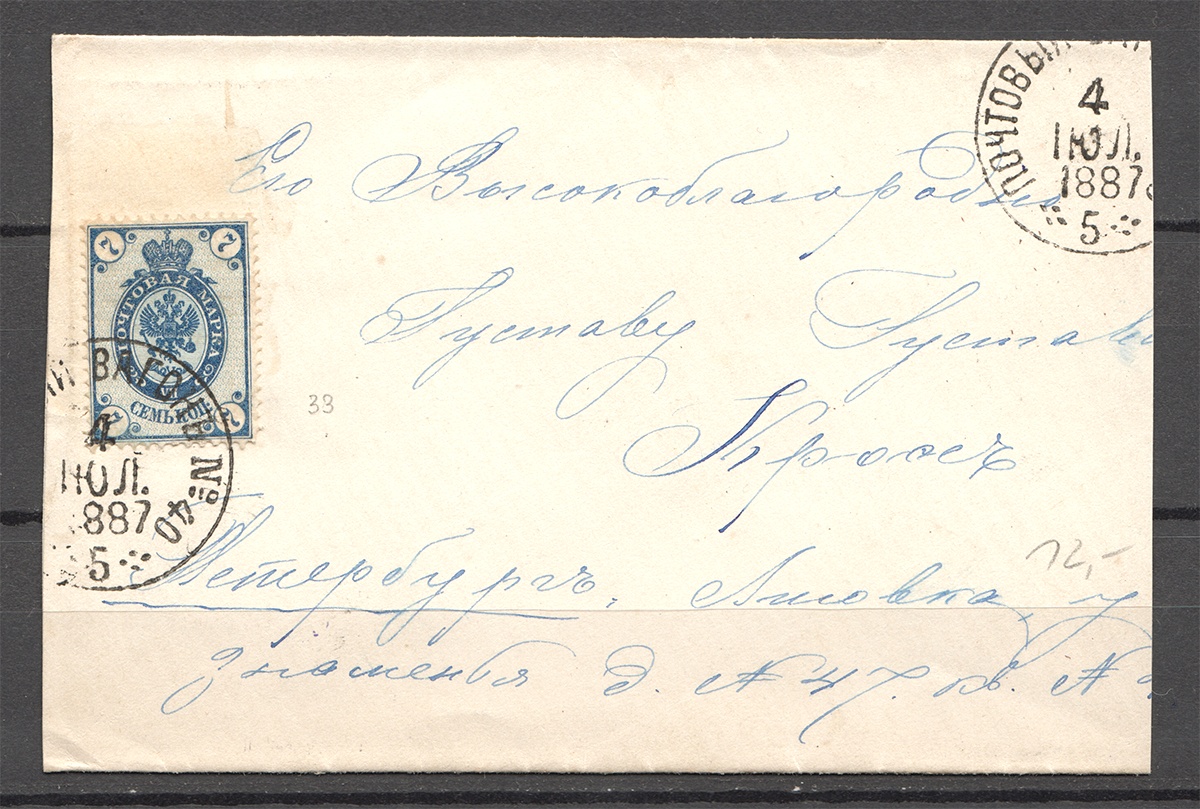 ПОЧТОВЫЙ
4
ІЮЛ.
1887
5
Его Высокоблагородію
Густаву Густав
Кроссъ
7 7
ПОЧТОВАЯ МАРКА
СЕМЬ КОП.
7 7
33
ВАГОНЪ № 40
4
ІЮЛ.
1887
5
12,-
Петербургъ, Лиговка, у
Знаменья д. № 47. кв. №